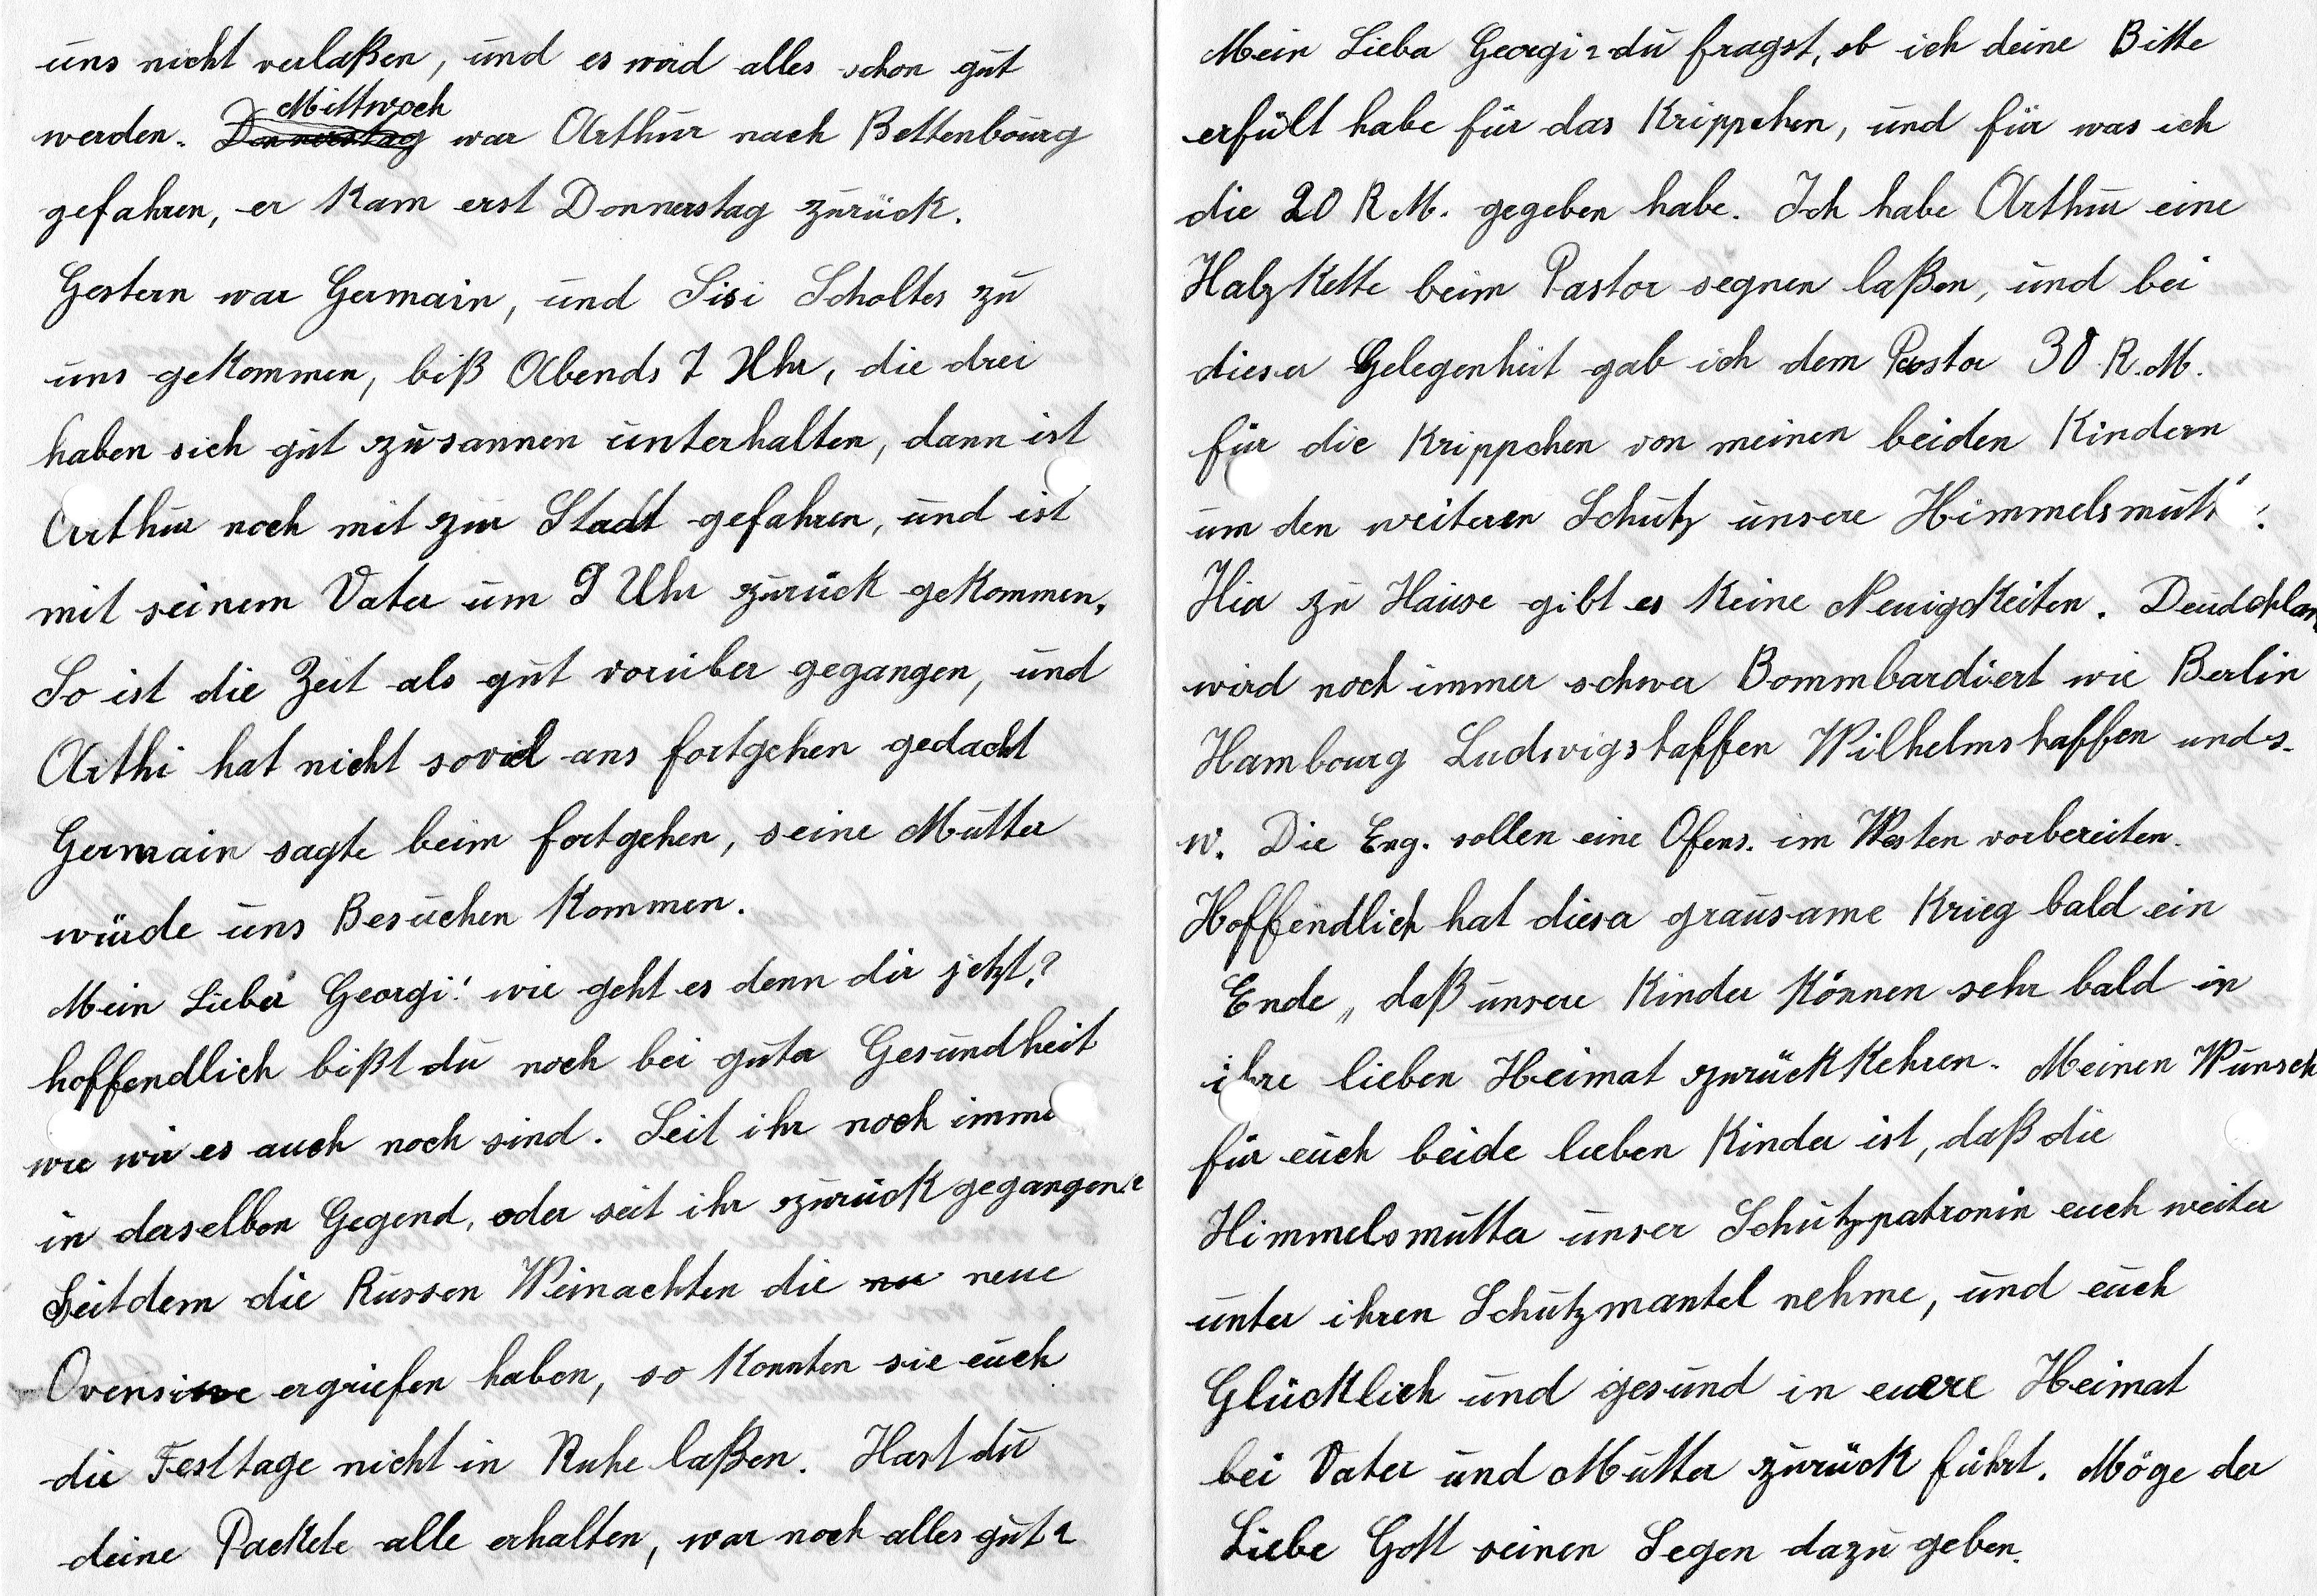 uns nicht verlaßen, und es wird alles schon gut
werden. Donnerstag Mittwoch war Arthur nach Bettenbourg
gefahren, er kam erst Donnerstag zurück.
Gestern war Germain, und Sisi Scholtes zu
uns gekommen, biß Abends 7 Uhr, die drei
haben sich gut zusannen unterhalten, dann ist
Arthur noch mit zur Stadt gefahren, und ist
mit seinem Vater um 9 Uhr zurück gekommen,
So ist die Zeit als gut vorüber gegangen, und
Arthi hat nicht soviel ans fortgehen gedacht
Germain sagte beim fortgehen, seine Mutter
würde uns Besuchen kommen.
Mein Lieber Georgi! wie geht es denn dir jetzt?
hoffendlich bißt du noch bei guter Gesundheit
wie wir es auch noch sind. Seit ihr noch imme
in derselben Gegend, oder seit ihr zurück gegangen?
Seitdem die Russen Weinachten die nu neue
Ovensive ergriefen haben, so konnten sie euch
die Festtage nicht in Ruhe laßen. Hast du
deine Packete alle erhalten, war noch alles gut?
Mein Lieber Georgi? du fragst, ob ich deine Bitte
erfült habe für das Krippchen, und für was ich
die 20 R M. gegeben habe. Ich habe Arthur eine
Halz Kette beim Pastor segnen laßen, und bei
dieser Gelegenheit gab ich dem Pastor 30 R.M.
für die Krippchen von meinen beiden Kindern
um den weiteren Schutz unsere Himmelsmutt
Hier zu Hause gibt es keine Neuigkeiten. Deudchlan
wird noch immer schwer Bommbardiert wie Berlin
Hambourg Ludwigshaffen Wilhelmshaffen und s.
w. Die Eng. sollen eine Ofens. im Westen vorbereiten.
Hoffendlich hat dieser grausame Krieg bald ein
Ende,, daß unsere Kinder können sehr bald in
ihre lieben Heimat zurückkehren. Meinen Wunsch
für euch beide lieben Kinder ist, daß die
Himmelsmutter unser Schutzpatronin euch weiter
unter ihren Schutzmantel nehme, und euch
Glücklich und gesund in euere Heimat
bei Vater und Mutter zurück führt. Möge der
Liebe Gott seinen Segen dazu geben.